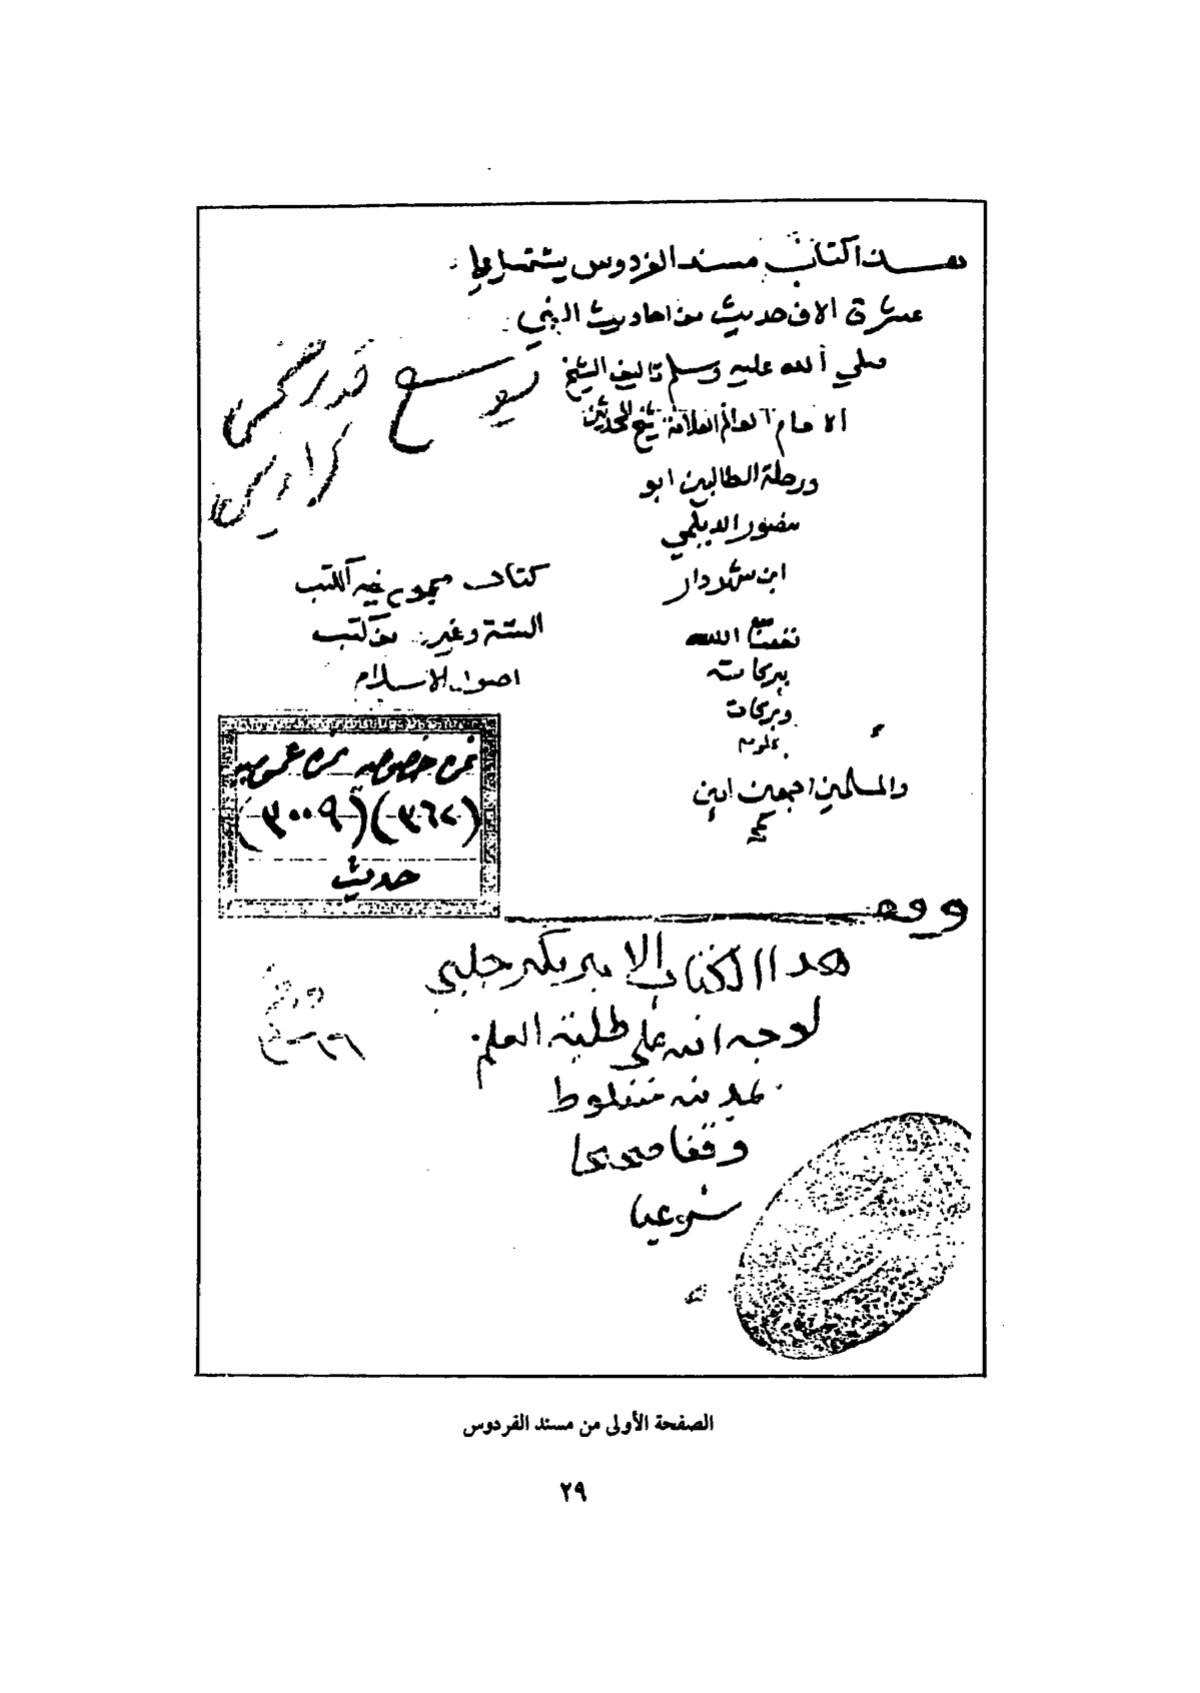 هذا كتاب مسند الفردوس يشتمل على
عشرة الاف حديث من احاديث النبي
صلي الله عليه وسلم تاليف الشيخ
الامام العالم العلامة شيخ المحدثين
ورحلة الطالبين ابو
منصور الديلمي
ابن شهردار
نفعنا الله
ببركاته
وبركات
علومه
والمسلمين اجمعين امين
كتاب مجموع فيه الكتب
الستة وغير من كتب
اصول الاسلام
نمرة خصوصيه نمرة عموميه
(٣٦٧) (٣٠٠٩)
حديث
وقف
هذا الكتاب الامير يكير جلبي
لوجه الله على طلبة العلم
بمدينه منفلوط
وقفا صحيحا
شرعيا
الصفحة الأولى من مسند الفردوس
٢٩